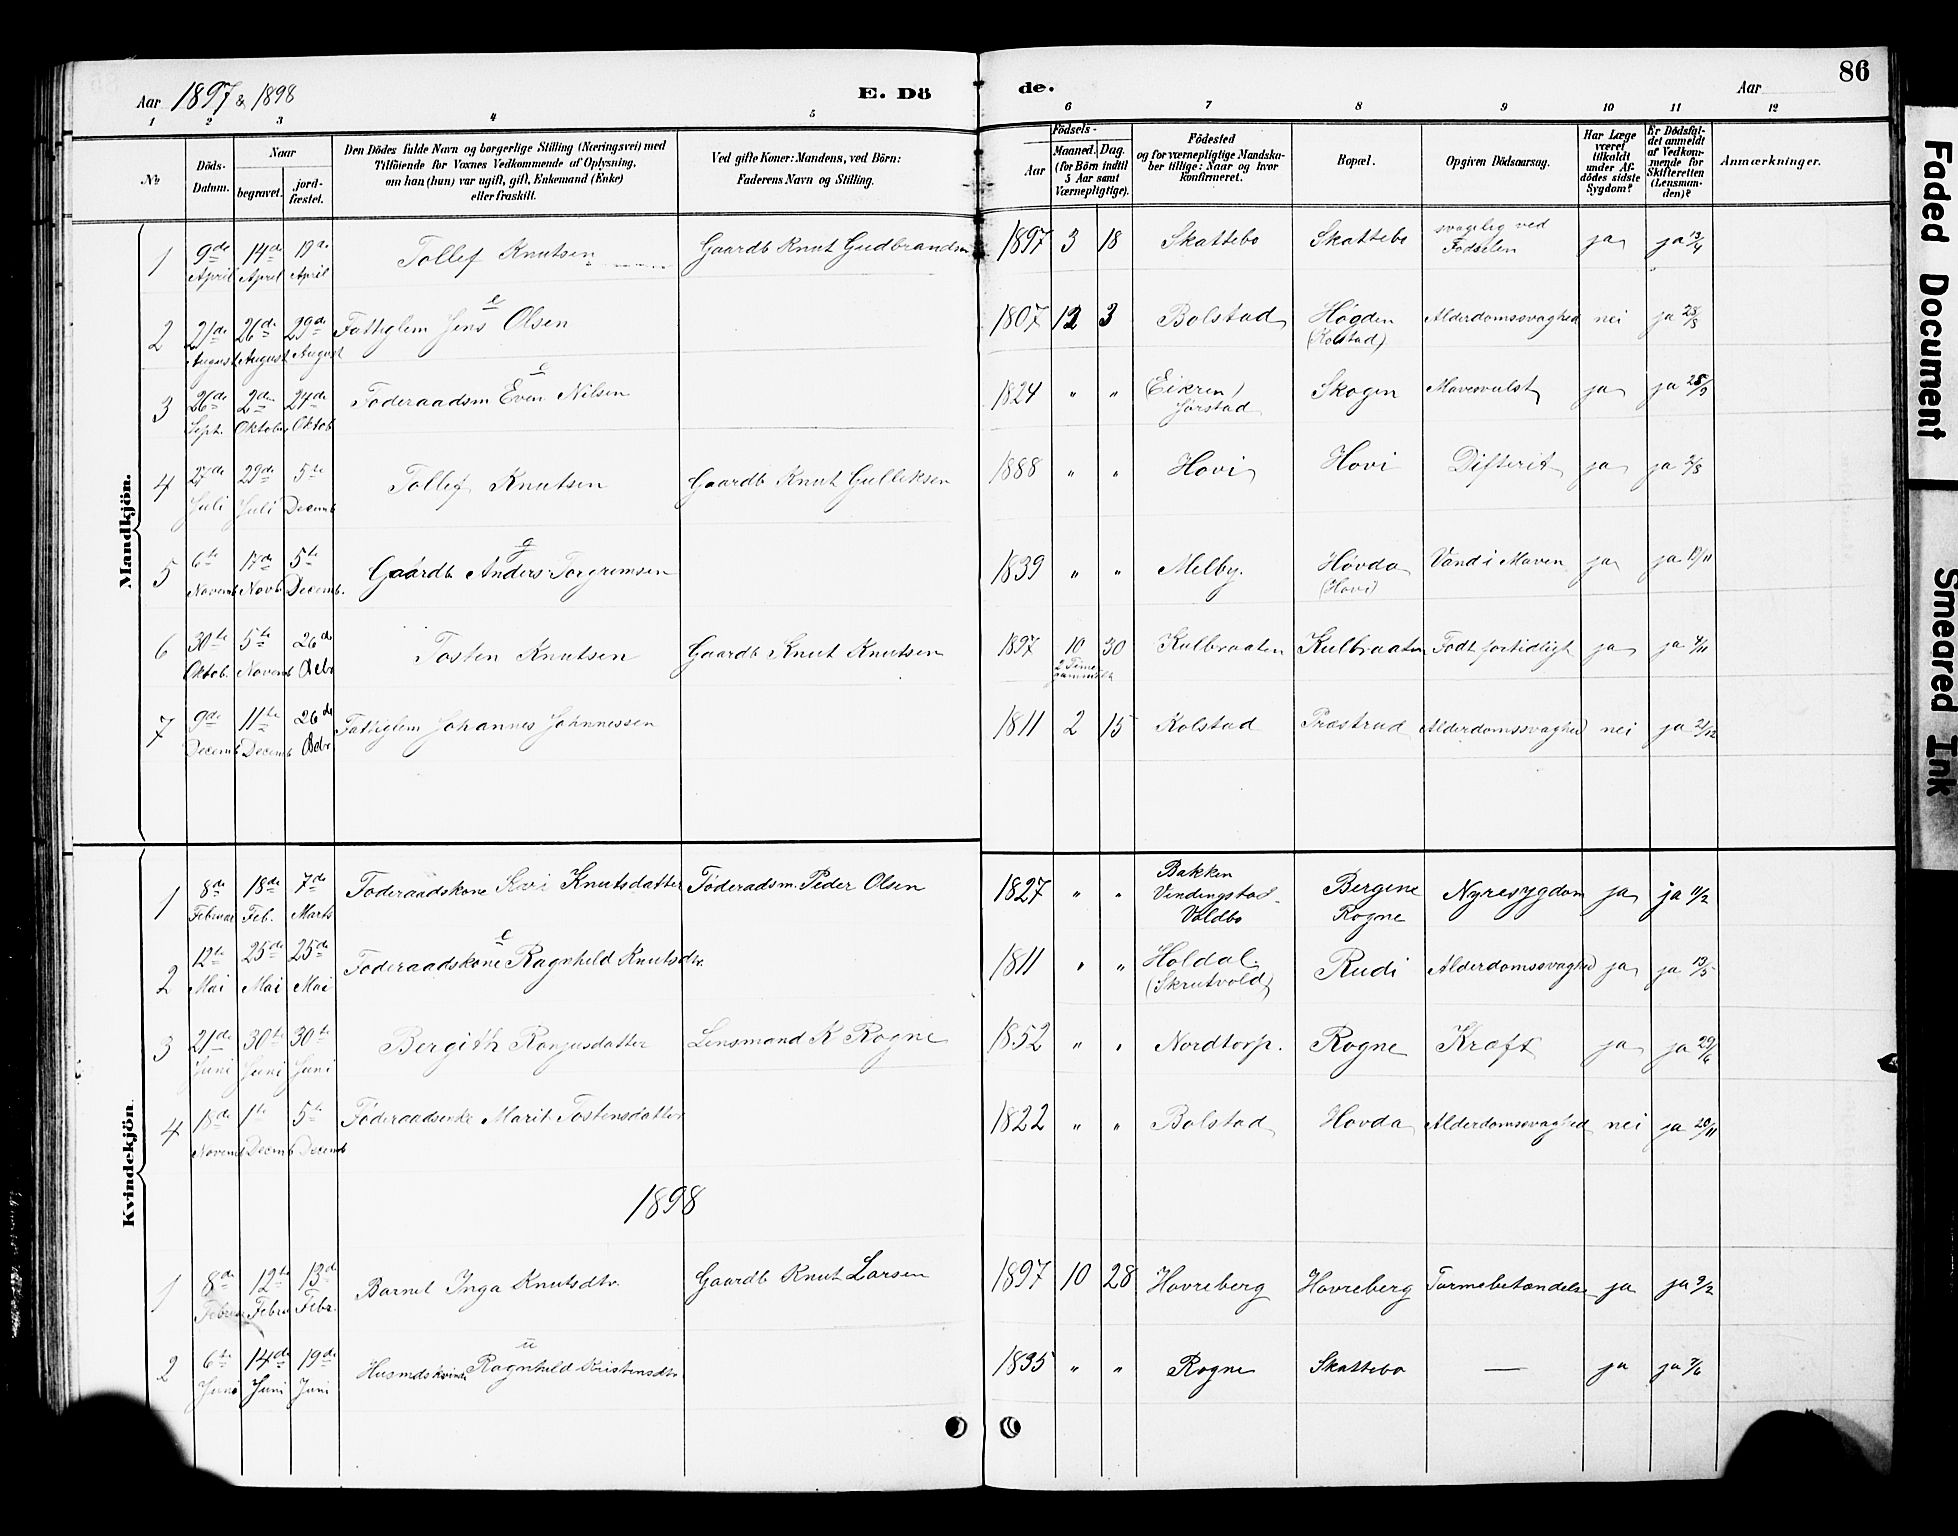 Aar 1897 & 1898
E. Dö
de.
Aar
86
1 2 3 4 5 6 7 8 9 10 11 12
No
Döds-Datum.
Naar
begravet.
jord-fæstet.
Den Dödes fulde Navn og borgerlige Stilling (Næringsvei) med
Tilföiende for Voxnes Vedkommende af Oplysning,
om han (hun) var ugift, gift, Enkemand (Enke)
eller fraskilt.
Ved gifte Koner: Mandens, ved Börn:
Faderens Navn og Stilling.
Födsels-
Aar
Maaned. Dag.
(for Börn indtil
3 Aar samt
Værnepligtige).
Födested
og for værnepligtige Mandska-
ber tillige: Naar og hvor
konfirmeret.
Bopæl.
Opgiven Dödsaarsag.
Har Læge
været
tilkaldt
under Af-
dödes sidste
Sygdom?
Er Dödsfal-
det anmeldt
af Vedkom-
mende for
Skifteretten
(Lensman-
den)?
Anmærkninger.
Mandkjön.
1 9de April 14de April 19de April Tollef Knutsen Gaardb Knut Gudbrandsen 1897 3 18 Skattebo Skattebo svagelig ved Fødselen ja ja 13/4
2 21de August 26de August 29de August Fattiglem Jens Olsen e 1807 12 3 Bolstad Høgden (Kolstad) Alderdomssvaghed nei ja 23/8
3 26de Sept. 2den Oktober 24de Oktob Føderaadsm Even Nilsen e 1824 " " (Eikren) Jørstad Skogen Mavesvulst ja ja 28/9
4 27de Juli 29de Juli 5te Decemb Tollef Knutsen Gaardb Knut Gulliksen 1888 " " Hovi Hovi Difterit ja ja 2/8
5 6te Novemb 17de Novb. 5te Decemb. Gaardb. Anders Torgrimsen g 1839 " " Melby. Høvda (Hovi) Vand i Maven ja ja 12/11
6 30te Oktob. 5te Novemb 26de Debr Tosten Knutsen Gaardb Knut Knutsen 1897 10 30 2 Time gammel Kulbraaten Kulbraaten Født fortidligt ja ja 4/11
7 9de Decemb 11te Decemb 26de Debr Fattiglem Johannes Johnnessen 1811 2 15 Kolstad Præstrud Alderdomssvaghed nei ja 21/12
Kvindekjön
1 8de Februar 18de Feb. 7de Marts Føderaadskone Kari Knutsdatter Føderadsm. Peder Olsen 1827 " " Bakken Vindingstad Valdbo Bergene Rogne Nyresygdom ja ja 11/2
2 12te Mai 25de Mai 25de Mai Føderaadskone Ragnhild Knutsdtr. e 1811 " " Holdal. (Skrutvold) Rudi Alderdomssvaghed ja ja 13/5
3 21de Juni 30te Juni 30te Juni Bergith Ranjusdatter Lensmand K Rogne 1852 " " Nordtorp. Rogne Kræft ja ja 29/6
4 18de Novemb 1te Decemb 5te Decemb Føderaadsenke Marit Tostensdatter 1822 " " Bolstad Hovda Alderdomssvaghed nei ja 20/11
1898
1 8de Februar 12te Febru 13de Febr. Barnet Inga Knutsdtr. Gaardb Knut Larsen 1897 10 28 Hovreberg Hovreberg Tarmebetændelse ja ja 9/2
2 6te Juni 14de Juni 19de Juni Husmdskvinde Ragnhild Kristensdtr u 1835 " " Rogne Skattebo — ja ja 7/6
Faded Document
Smeared Ink